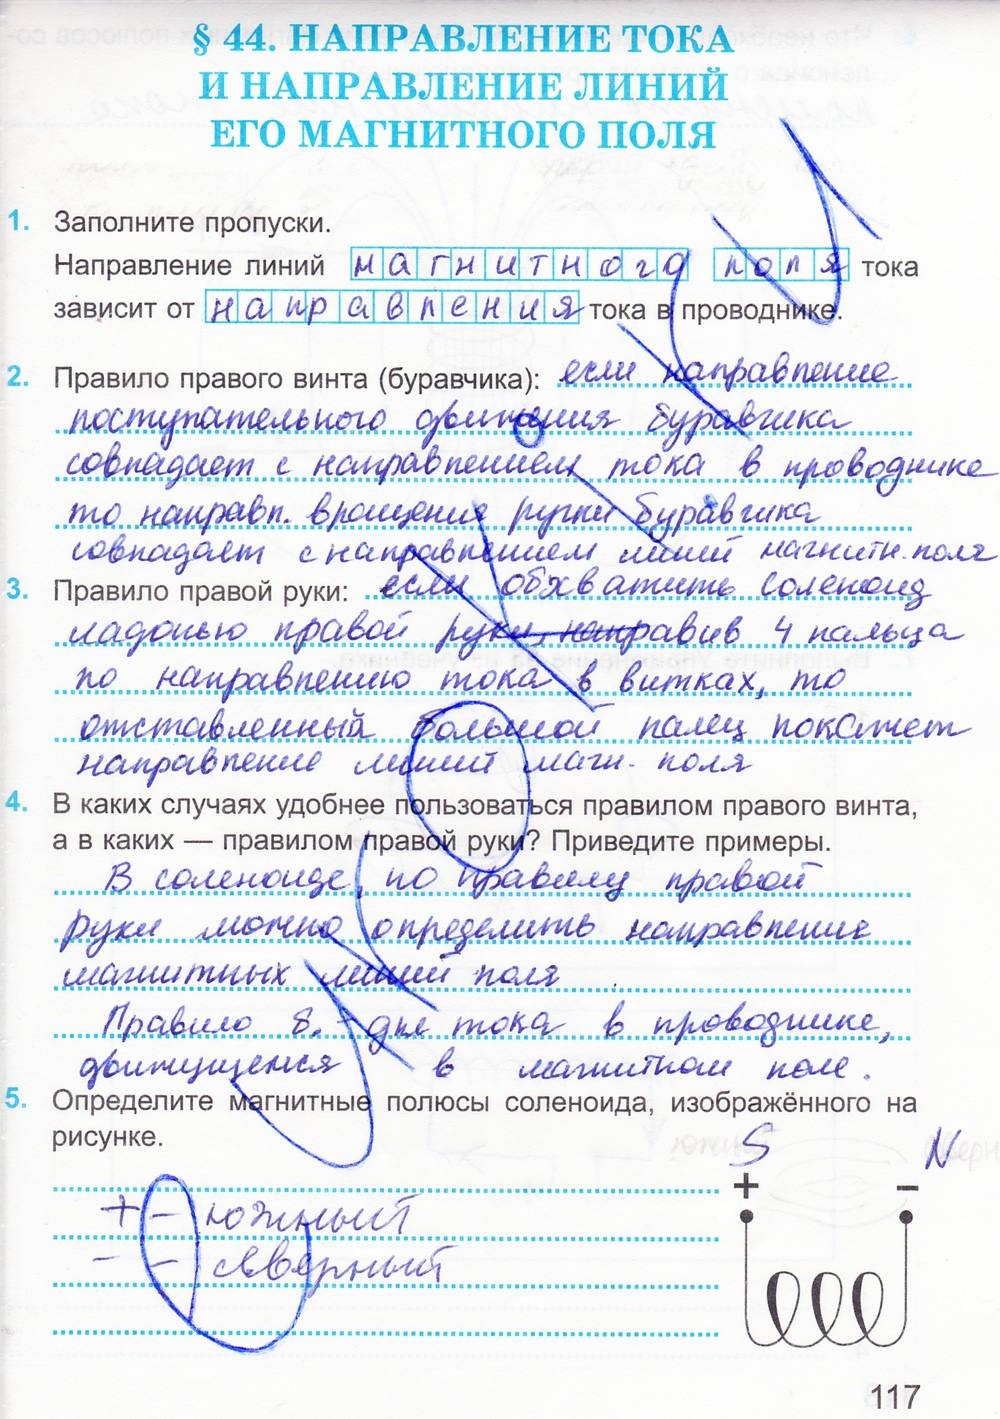 § 44. НАПРАВЛЕНИЕ ТОКА
И НАПРАВЛЕНИЕ ЛИНИЙ
ЕГО МАГНИТНОГО ПОЛЯ
1. Заполните пропуски.
Направление линий магнитного поля тока
зависит от направления тока в проводнике.
2. Правило правого винта (буравчика): если направление
поступательного движения буравчика
совпадает с направлением тока в проводнике
то направл. вращения ручки буравчика
совпадает с направлением линий магнитн. поля
3. Правило правой руки: если обхватить соленоид
ладонью правой руки, направив 4 пальца
по направлению тока в витках, то
отставленный большой палец покажет
направление линий магн. поля
4. В каких случаях удобнее пользоваться правилом правого винта,
а в каких — правилом правой руки? Приведите примеры.
В соленоиде, по правилу правой
руки можно определить направление
магнитных линий поля
Правило б. - для тока в проводнике,
движущемся в магнитном поле.
5. Определите магнитные полюсы соленоида, изображённого на
рисунке.
S N
+ –
+ - южный
- - северный
117